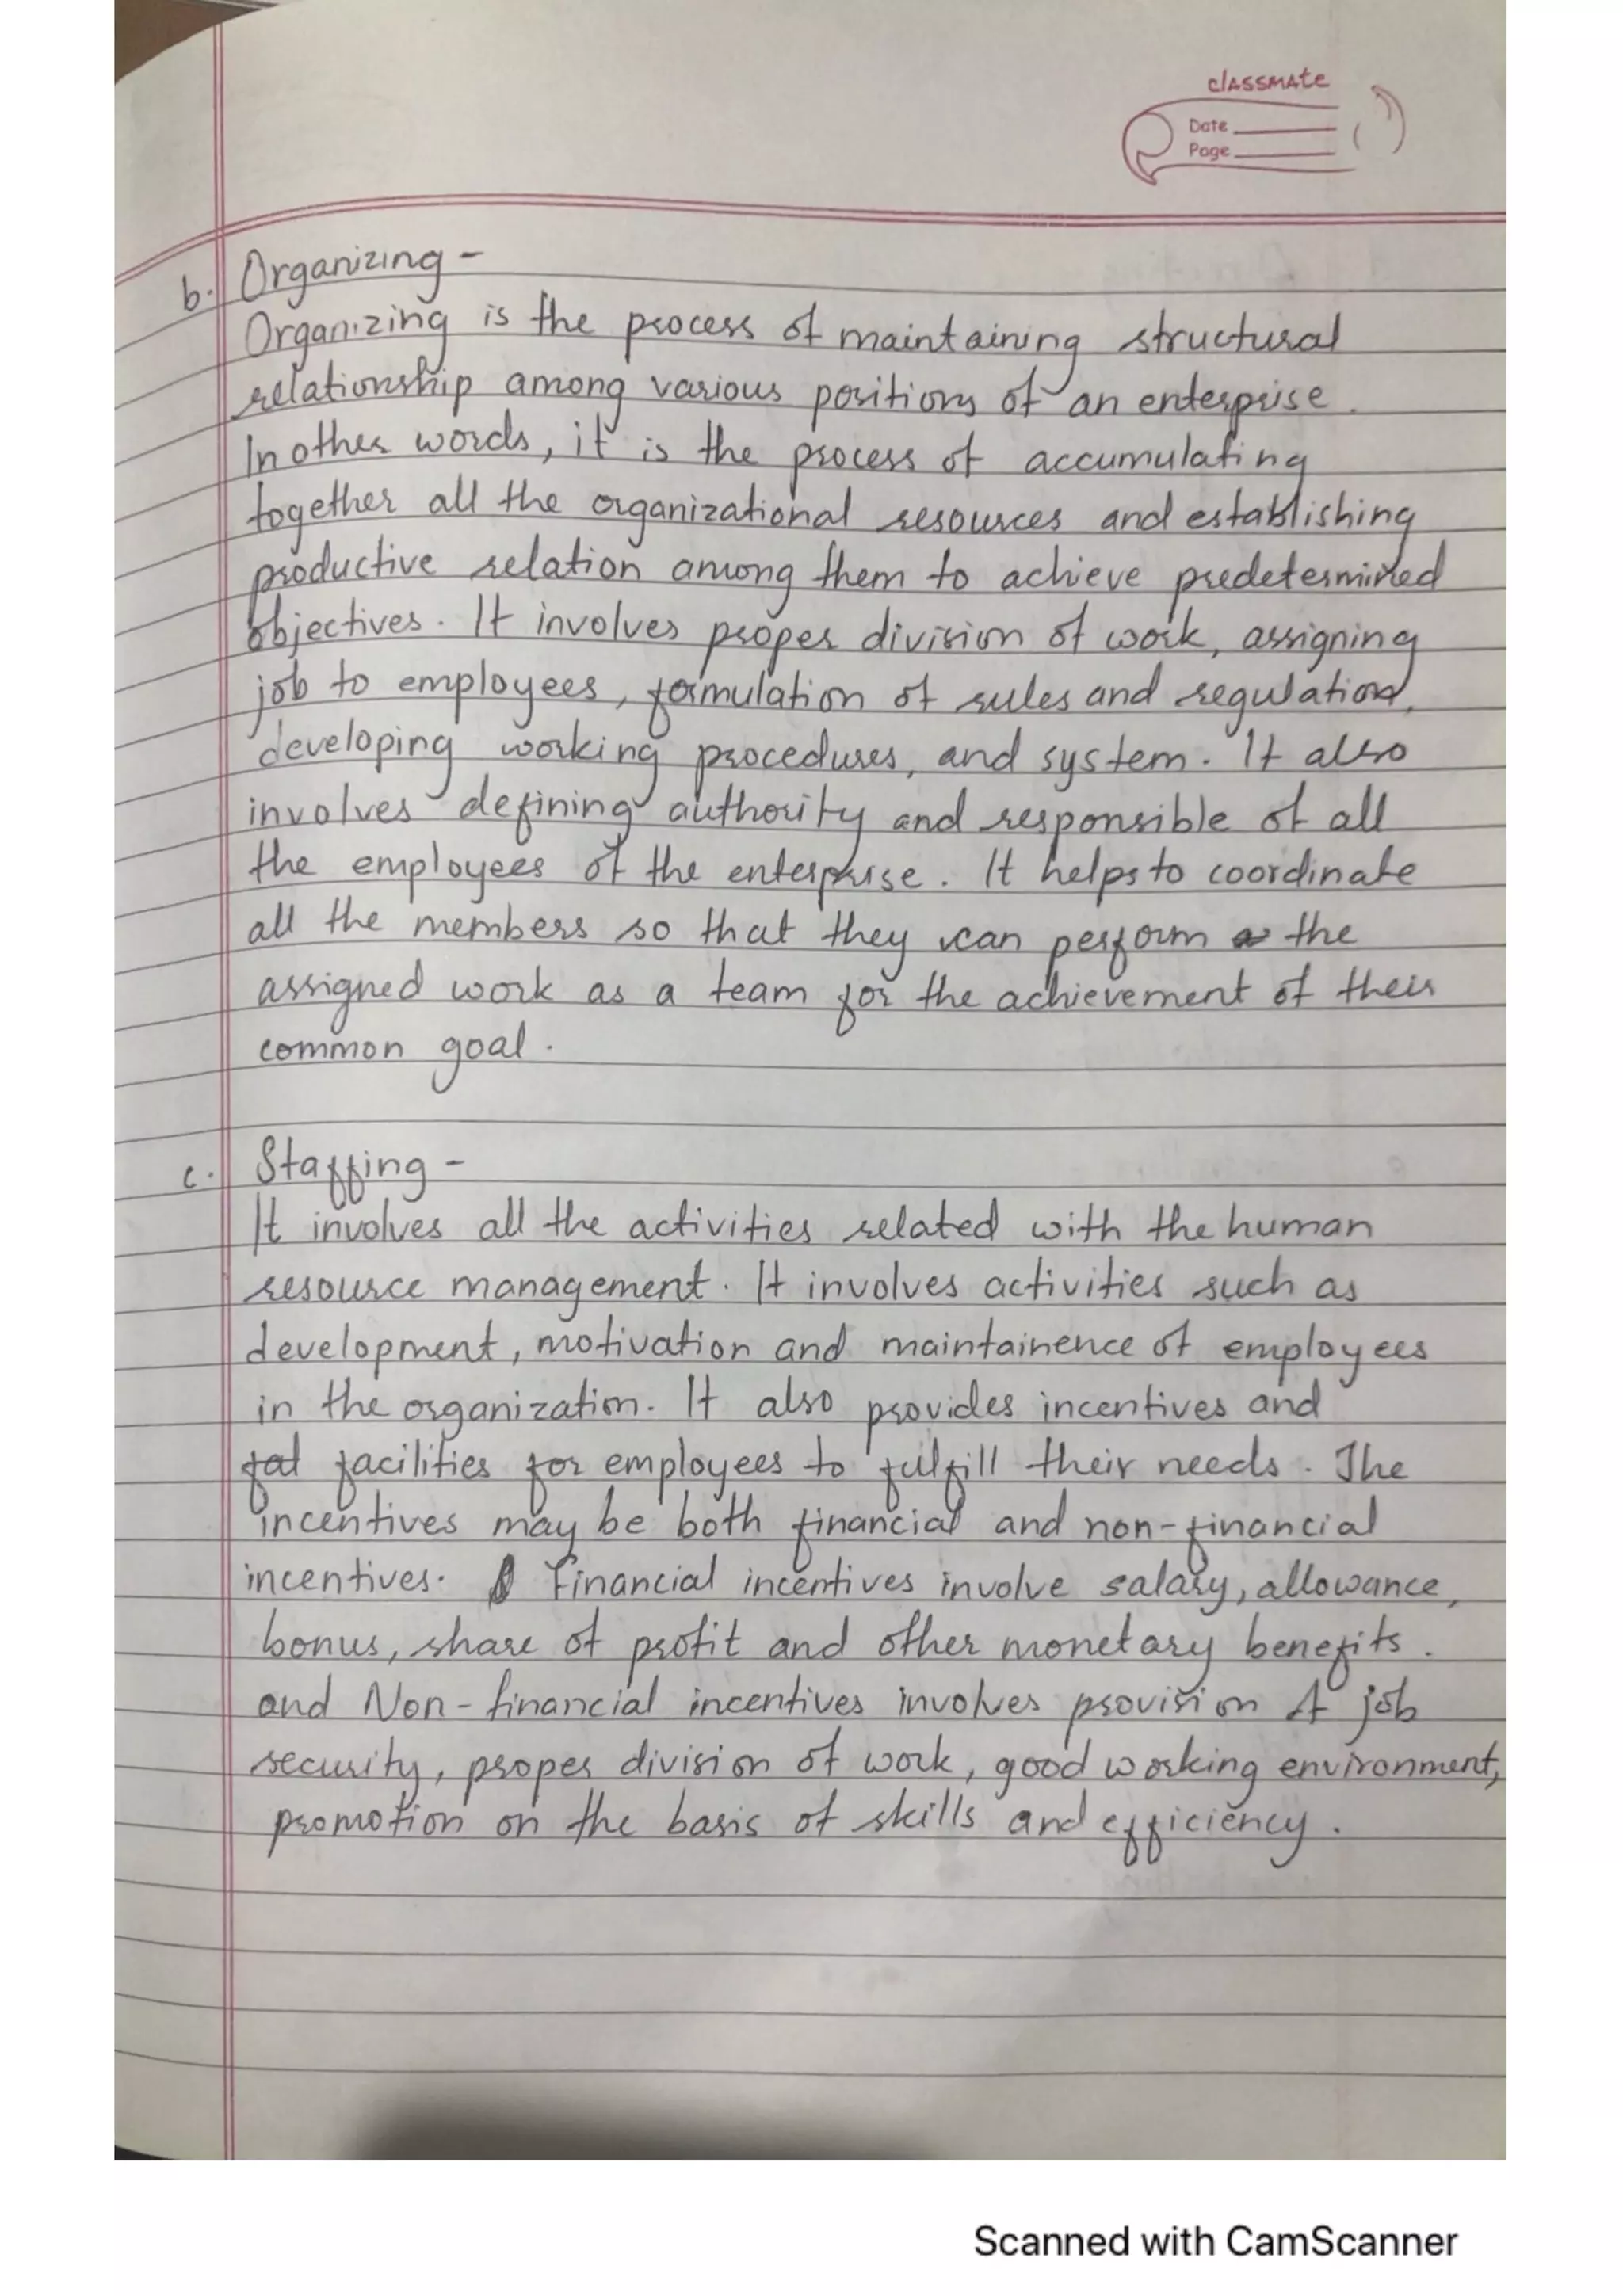 classmate
Date
Page
b. Organizing -
Organizing is the process of maintaining structural
relationship among various positions of an enterprise.
In other words, it is the process of accumulating
together all the organizational resources and establishing
productive relation among them to achieve predetermined
objectives. It involves proper division of work, assigning
job to employees, formulation of rules and regulation,
developing working procedures, and system. It also
involves defining authority and responsible of all
the employees of the enterprise. It helps to coordinate
all the members so that they can perform the
assigned work as a team for the achievement of their
common goal.
c. Staffing -
It involves all the activities related with the human
resource management. It involves activities such as
development, motivation and maintainence of employees
in the organization. It also provides incentives and
fat facilities for employees to fulfill their needs. The
incentives may be both financial and non-financial
incentives. Financial incentives involve salary, allowance,
bonus, share of profit and other monetary benefits.
and Non-financial incentives involves provision of job
security, proper division of work, good working environment,
promotion on the basis of skills and efficiency.
Scanned with CamScanner